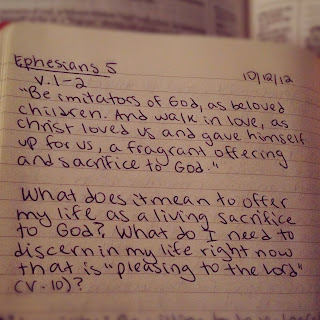 Ephesians 5 10/12/12
v.1-2
"Be imitators of God, as beloved
children. And walk in love, as
Christ loved us and gave himself
up for us, a fragrant offering
and sacrifice to God."
What does it mean to offer
my life as a living sacrifice
to God? What do I need to
discern in my life right now
that is "pleasing to the Lord"
(v.10)?